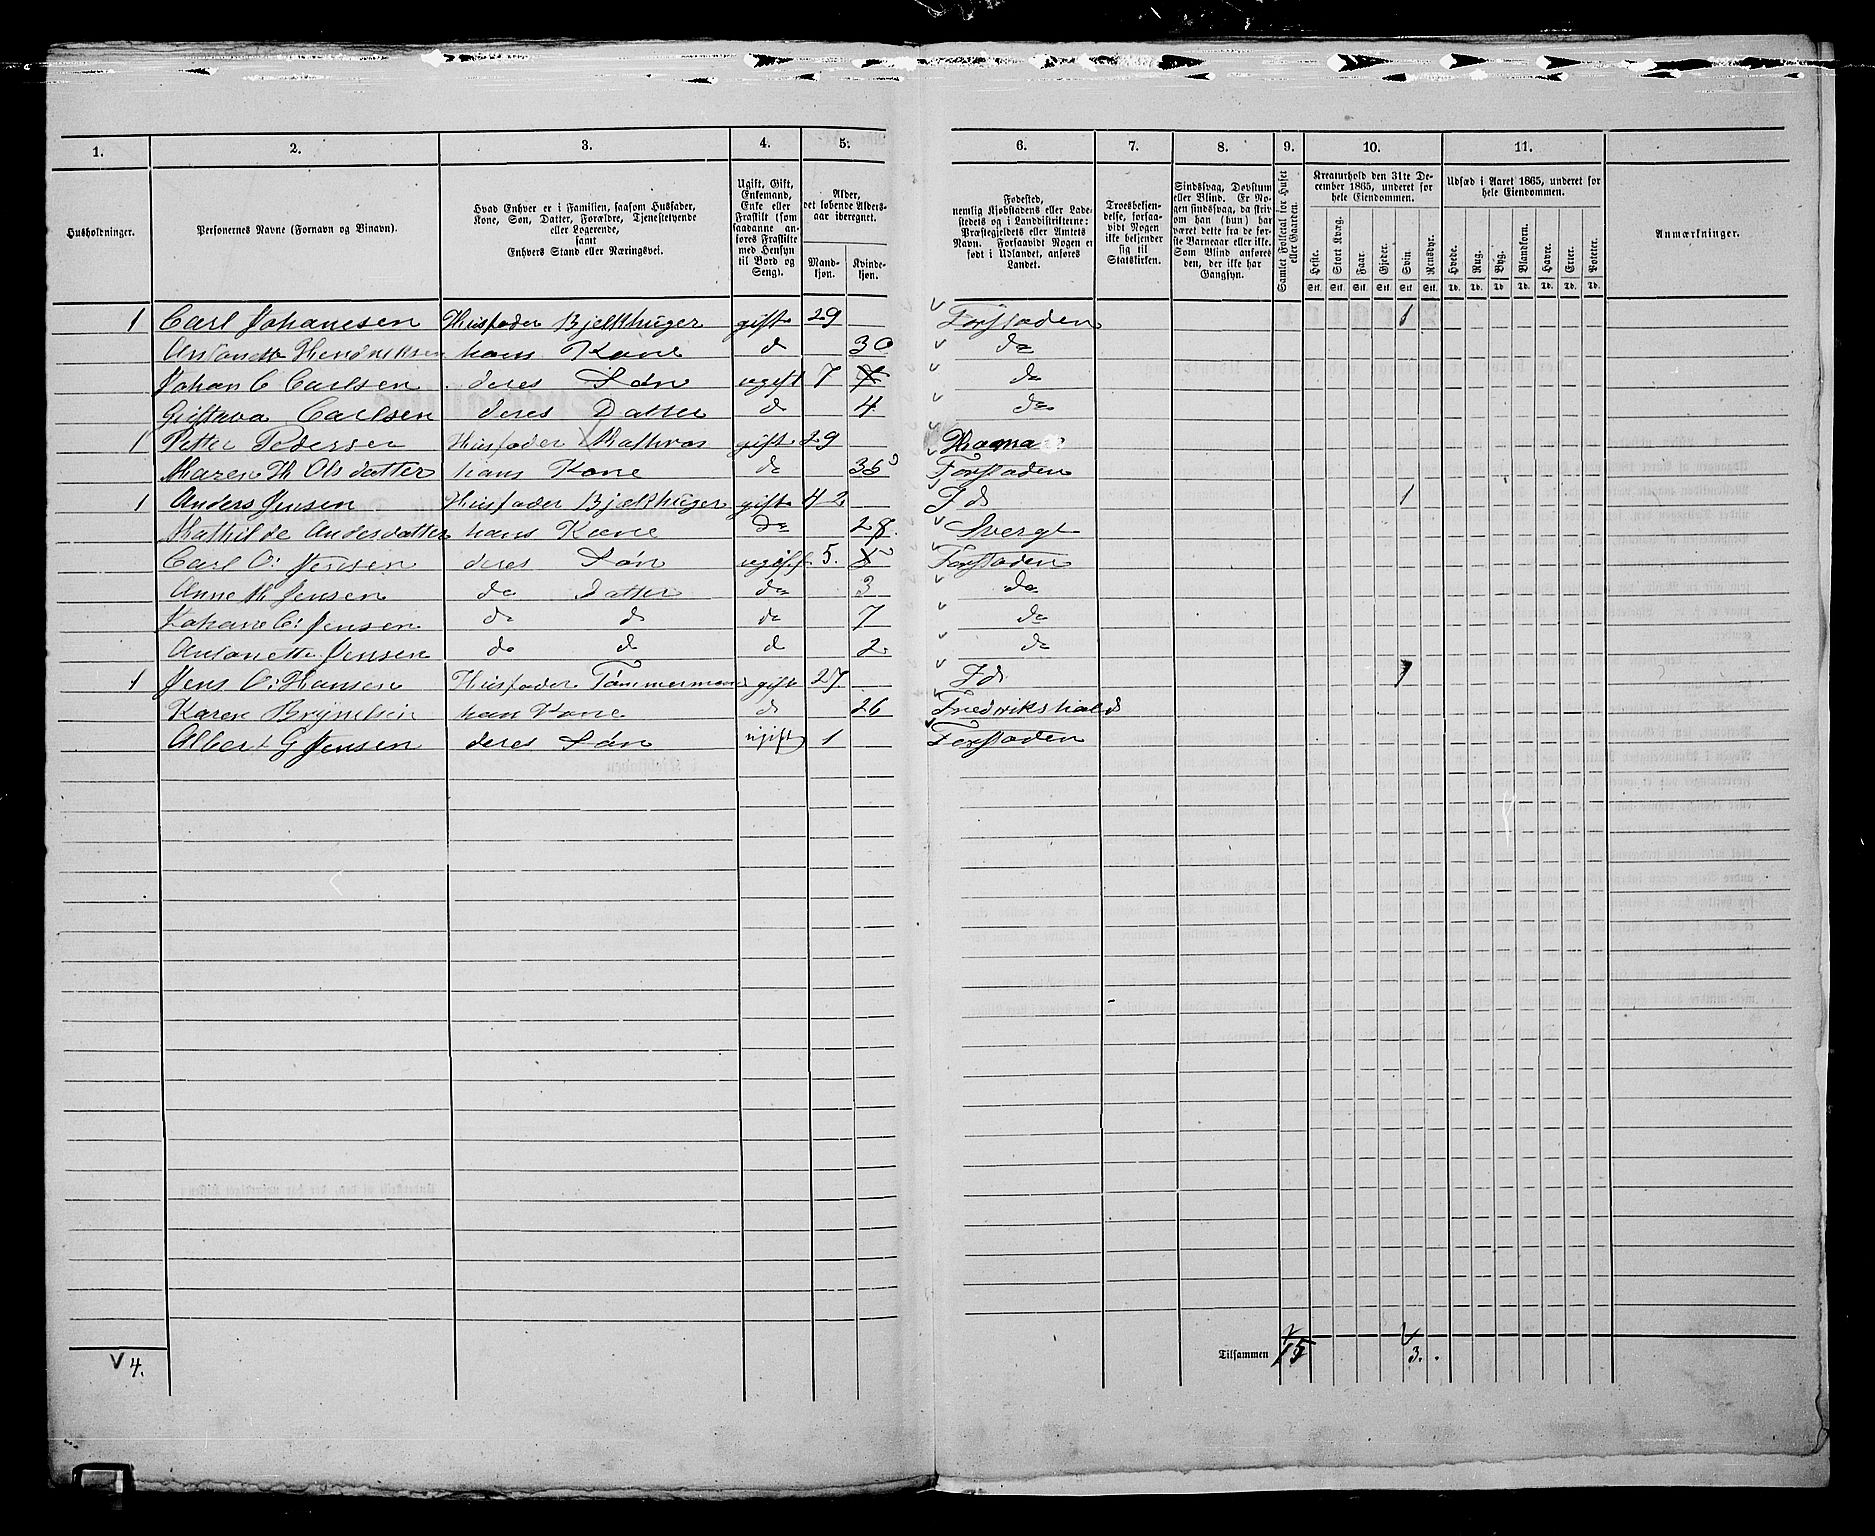 1. 2. 3. 4. 5. 6. 7. 8. 9. 10. 11.
Husholdninger. Personernes Navne (Fornavn og Binavn). Hvad Enhver er i Familien, saasom Husfader, Kone, Søn, Datter, Forældre, Tjenestetyende eller Logerende, samt Enhvers Stand eller Næringsvei. Ugift, Gift, Enkemand, Enke eller Fraskilt (som saadanne anføres Fraskilte med Hensyn til Bord og Seng). Alder, det løbende Aldersaar iberegnet. Mandkjøn. Kvindekjøn. Fødested, nemlig Kjøbstadens eller Ladestedets og i Landdistrikterne: Præstegjeldets eller Amtets Navn. Forsaavidt Nogen er født i Udlandet, anføres Landet. Troesbekjendelse, forsaavidt Nogen ikke bekjender sig til Statskirken. Sindssvag, Døvstum eller Blind. Er Nogen sindssvag, da skriv om han (hun) har været dette fra de første Barneaar eller ikke. Som Blind anføres den, der ikke har Gangsyn. Samlet Folketal for Huset eller Gaarden. Kreaturhold den 31te December 1865, underet før hele Eiendommen. Heste. Stort Kvæg. Faar. Gjeder. Svin. Rensdyr. Udsæd i Aaret 1865, underet før hele Eiendommen. Hvede. Rug. Byg. Blandkorn. Havre. Erter. Poteter. Anmærkninger.
Stk. Stk. Stk. Stk. Stk. Stk. Td. Td. Td. Td. Td. Td. Td.
1 Carl Johanesen Husfader Bjelkhuger gift 29 Forstaden 1
Antonette Hendriksen hans Kone d 30 do
Johan C Carlsen deres Søn ugift 7 do
Gustava Carlsen deres Datter d 4 do
1 Petter Pedersen Husfader Mathros gift 29
Maren M Olsdatter hans Kone do Forstaden
1 Anders Jensen Husfader Bjelkhuger gift 42 Id 1
Mathilde Andersdatter hans Kone do Sverge
Carl O: Jensen deres Søn ugift 5. Forstaden
Anne M Jensen do Datter do 3 do
Johane C: Jensen do d do 7 do
Antonette Jensen do d d 2. do
1 Jens O: Hansen Husfader Tømmermand gift 27 Id 1
Karen Brynelsen han Kone d 26 Fredrikshald
Albert G Jensen deres Søn ugift 1 Forstaden
V 4. Tilsammen 15 3.